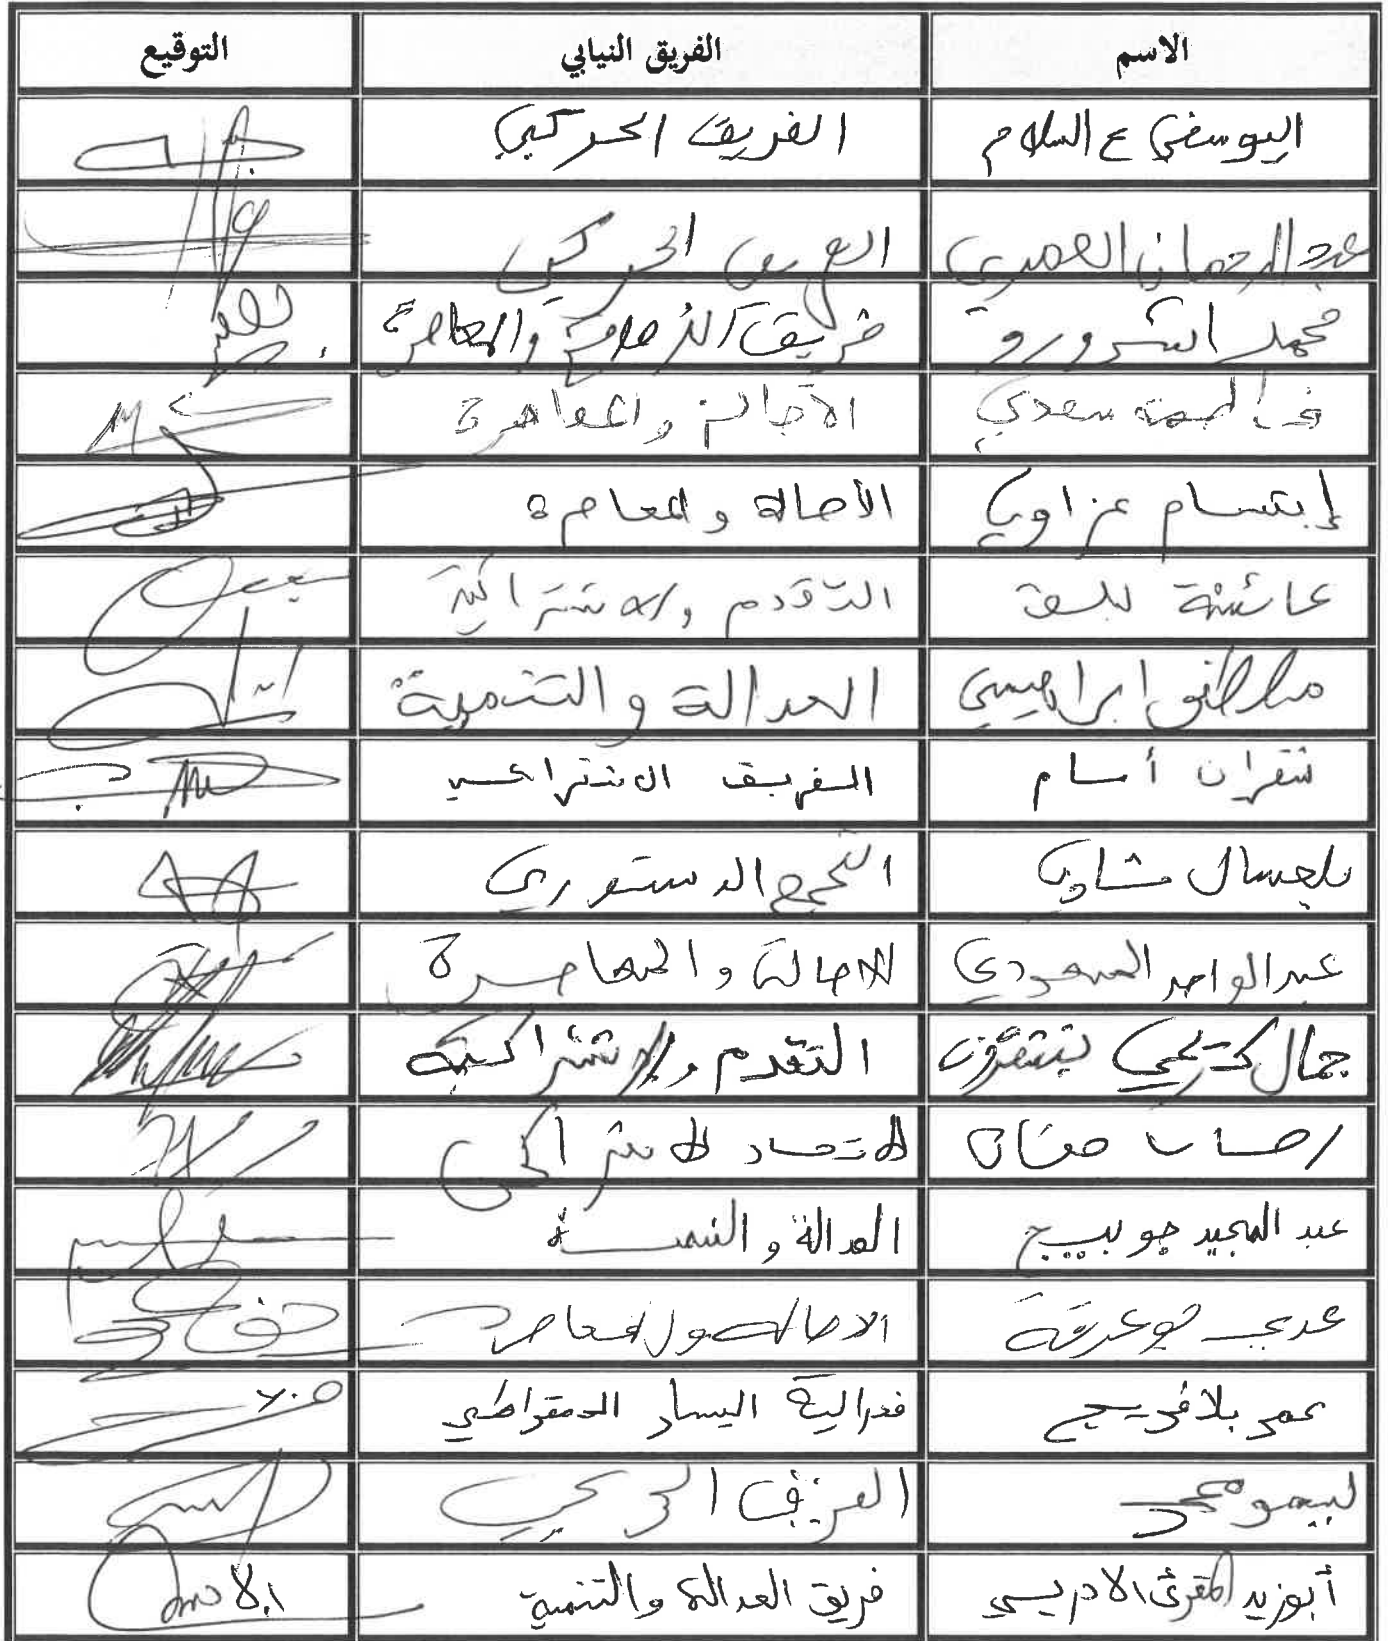 الاسم الفريق النيابي التوقيع
اليوسفي ع السلام الفريق الحركي
عبد الرحمان العمري الفريق الحركي
محمد اشرورو فريق الأصالة والمعاصرة
فاطمة سعدي الأصالة والمعاصرة
إبتسام عزاوي الأصالة والمعاصرة
عائشة لبلق التقدم والاشتراكية
مصطفى ابراهيمي العدالة والتنمية
شقران أمام الفريق الاشتراكي
بلعسال شاوي التجمع الدستوري
عبد الواحد المسعودي الاصالة والمعاصرة
جمال كريمي بنشقرون التقدم والاشتراكية
الاتحاد الاشتراكي
عبد المجيد جوبيج العدالة والتنمية
عدي بوعرفة الاصالة والمعاصرة
عمر بلافريج فدرالية اليسار الدمقراطي
محمد الفريق الحركي
أبوزيد المقرئ الادريسي فريق العدالة والتنمية